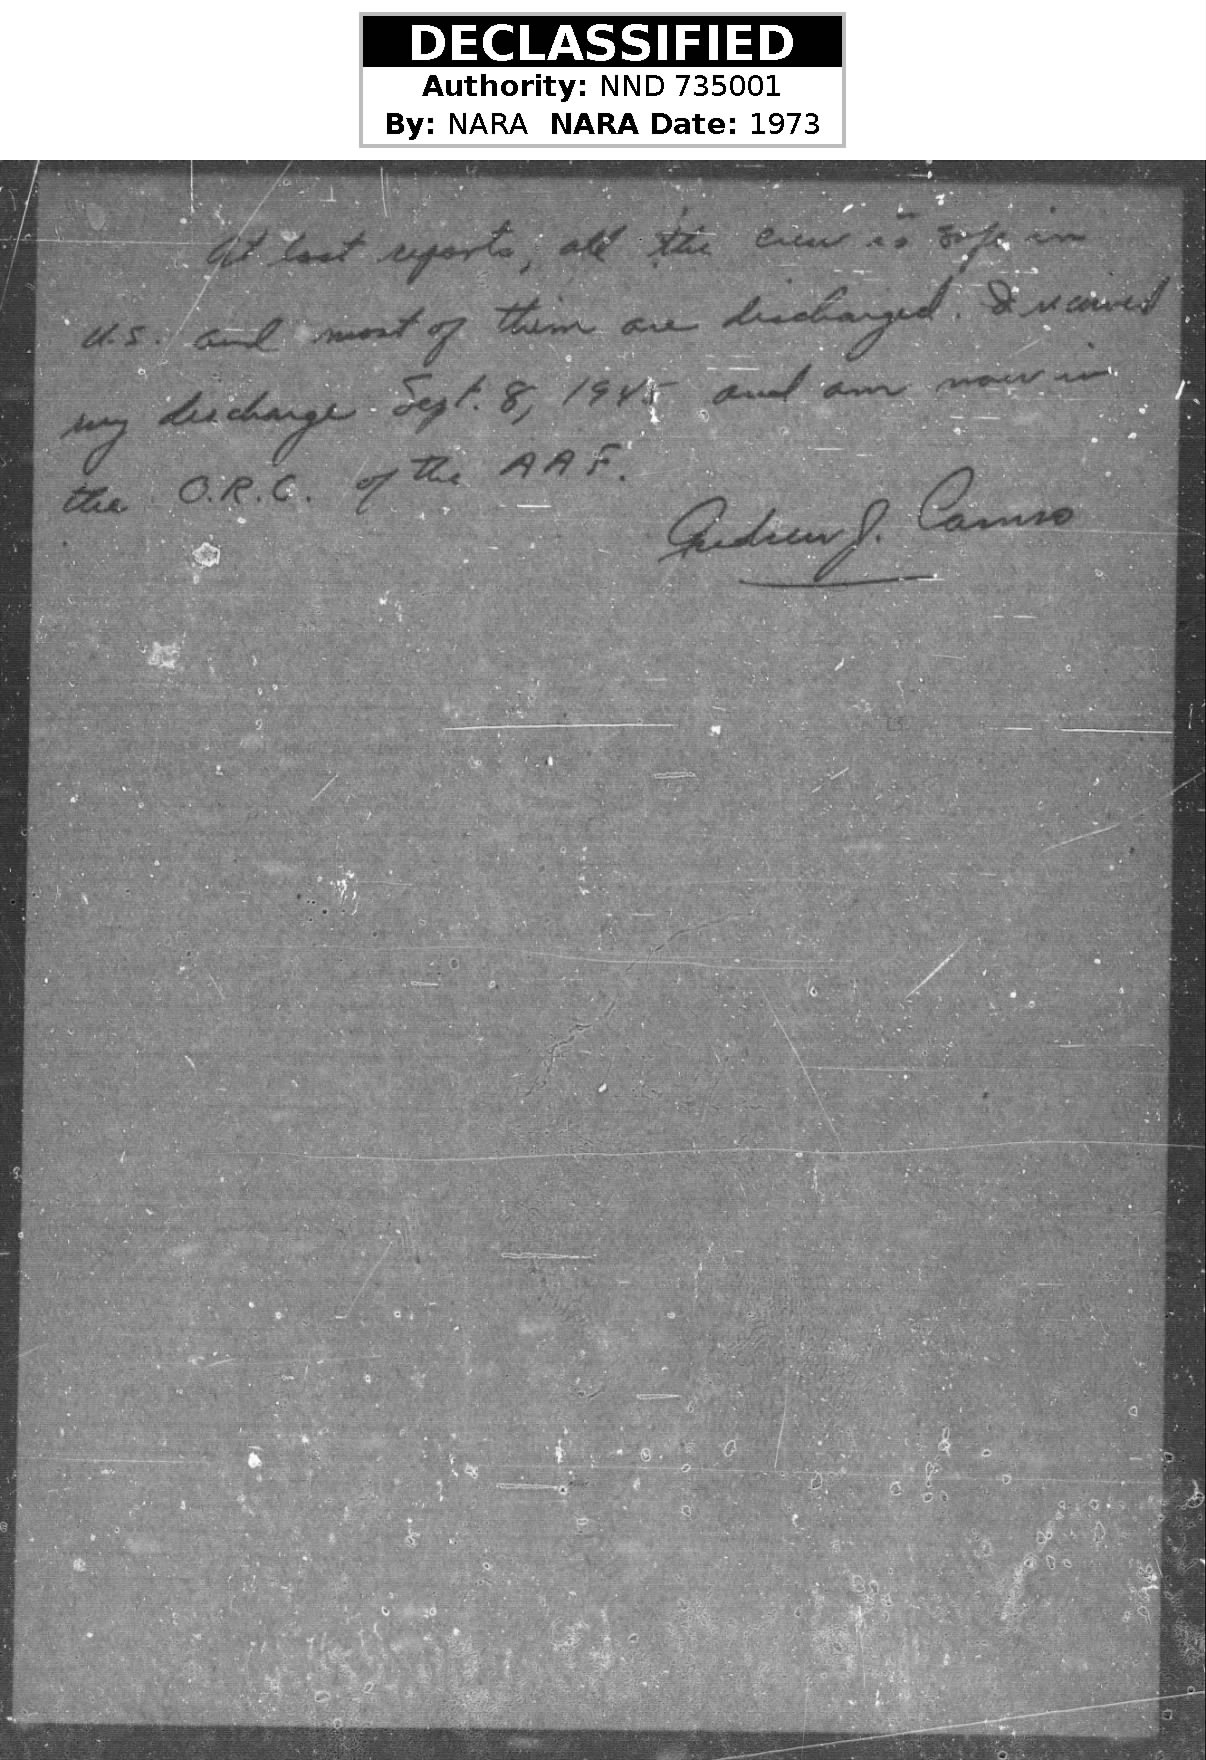 DECLASSIFIED
Authority: NND 735001
By: NARA NARA Date: 1973
At last reports, all the crew is safe in
U.S. and most of them are discharged. I received
my discharge Sept. 8, 1945 and am now in
the O.R.C. of the AAF.
Andrew J. Caruso